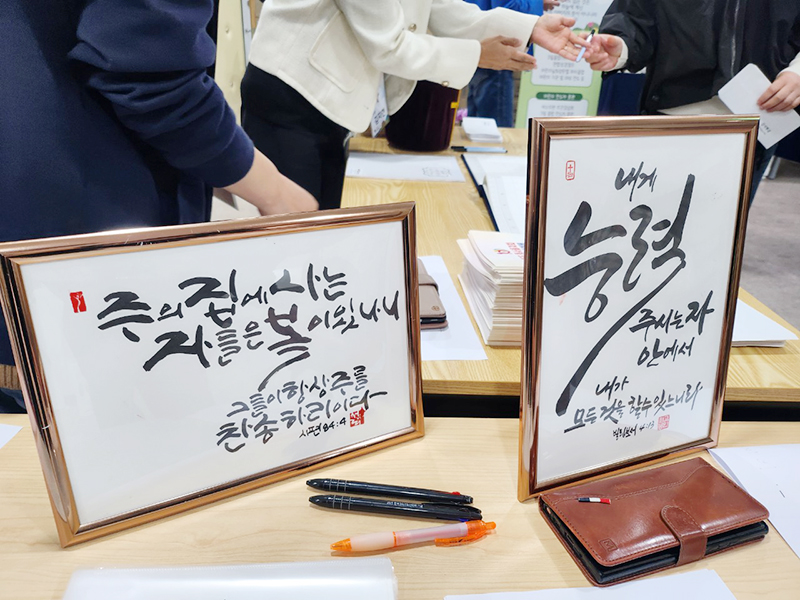 주의 집에 사는
자들은 복이 있나니
그들이 항상 주를
찬송하리이다
시편 84:4
내게
능력
주시는 자
안에서
내가
모든 것을 할 수 있느니라
빌립보서 4:13